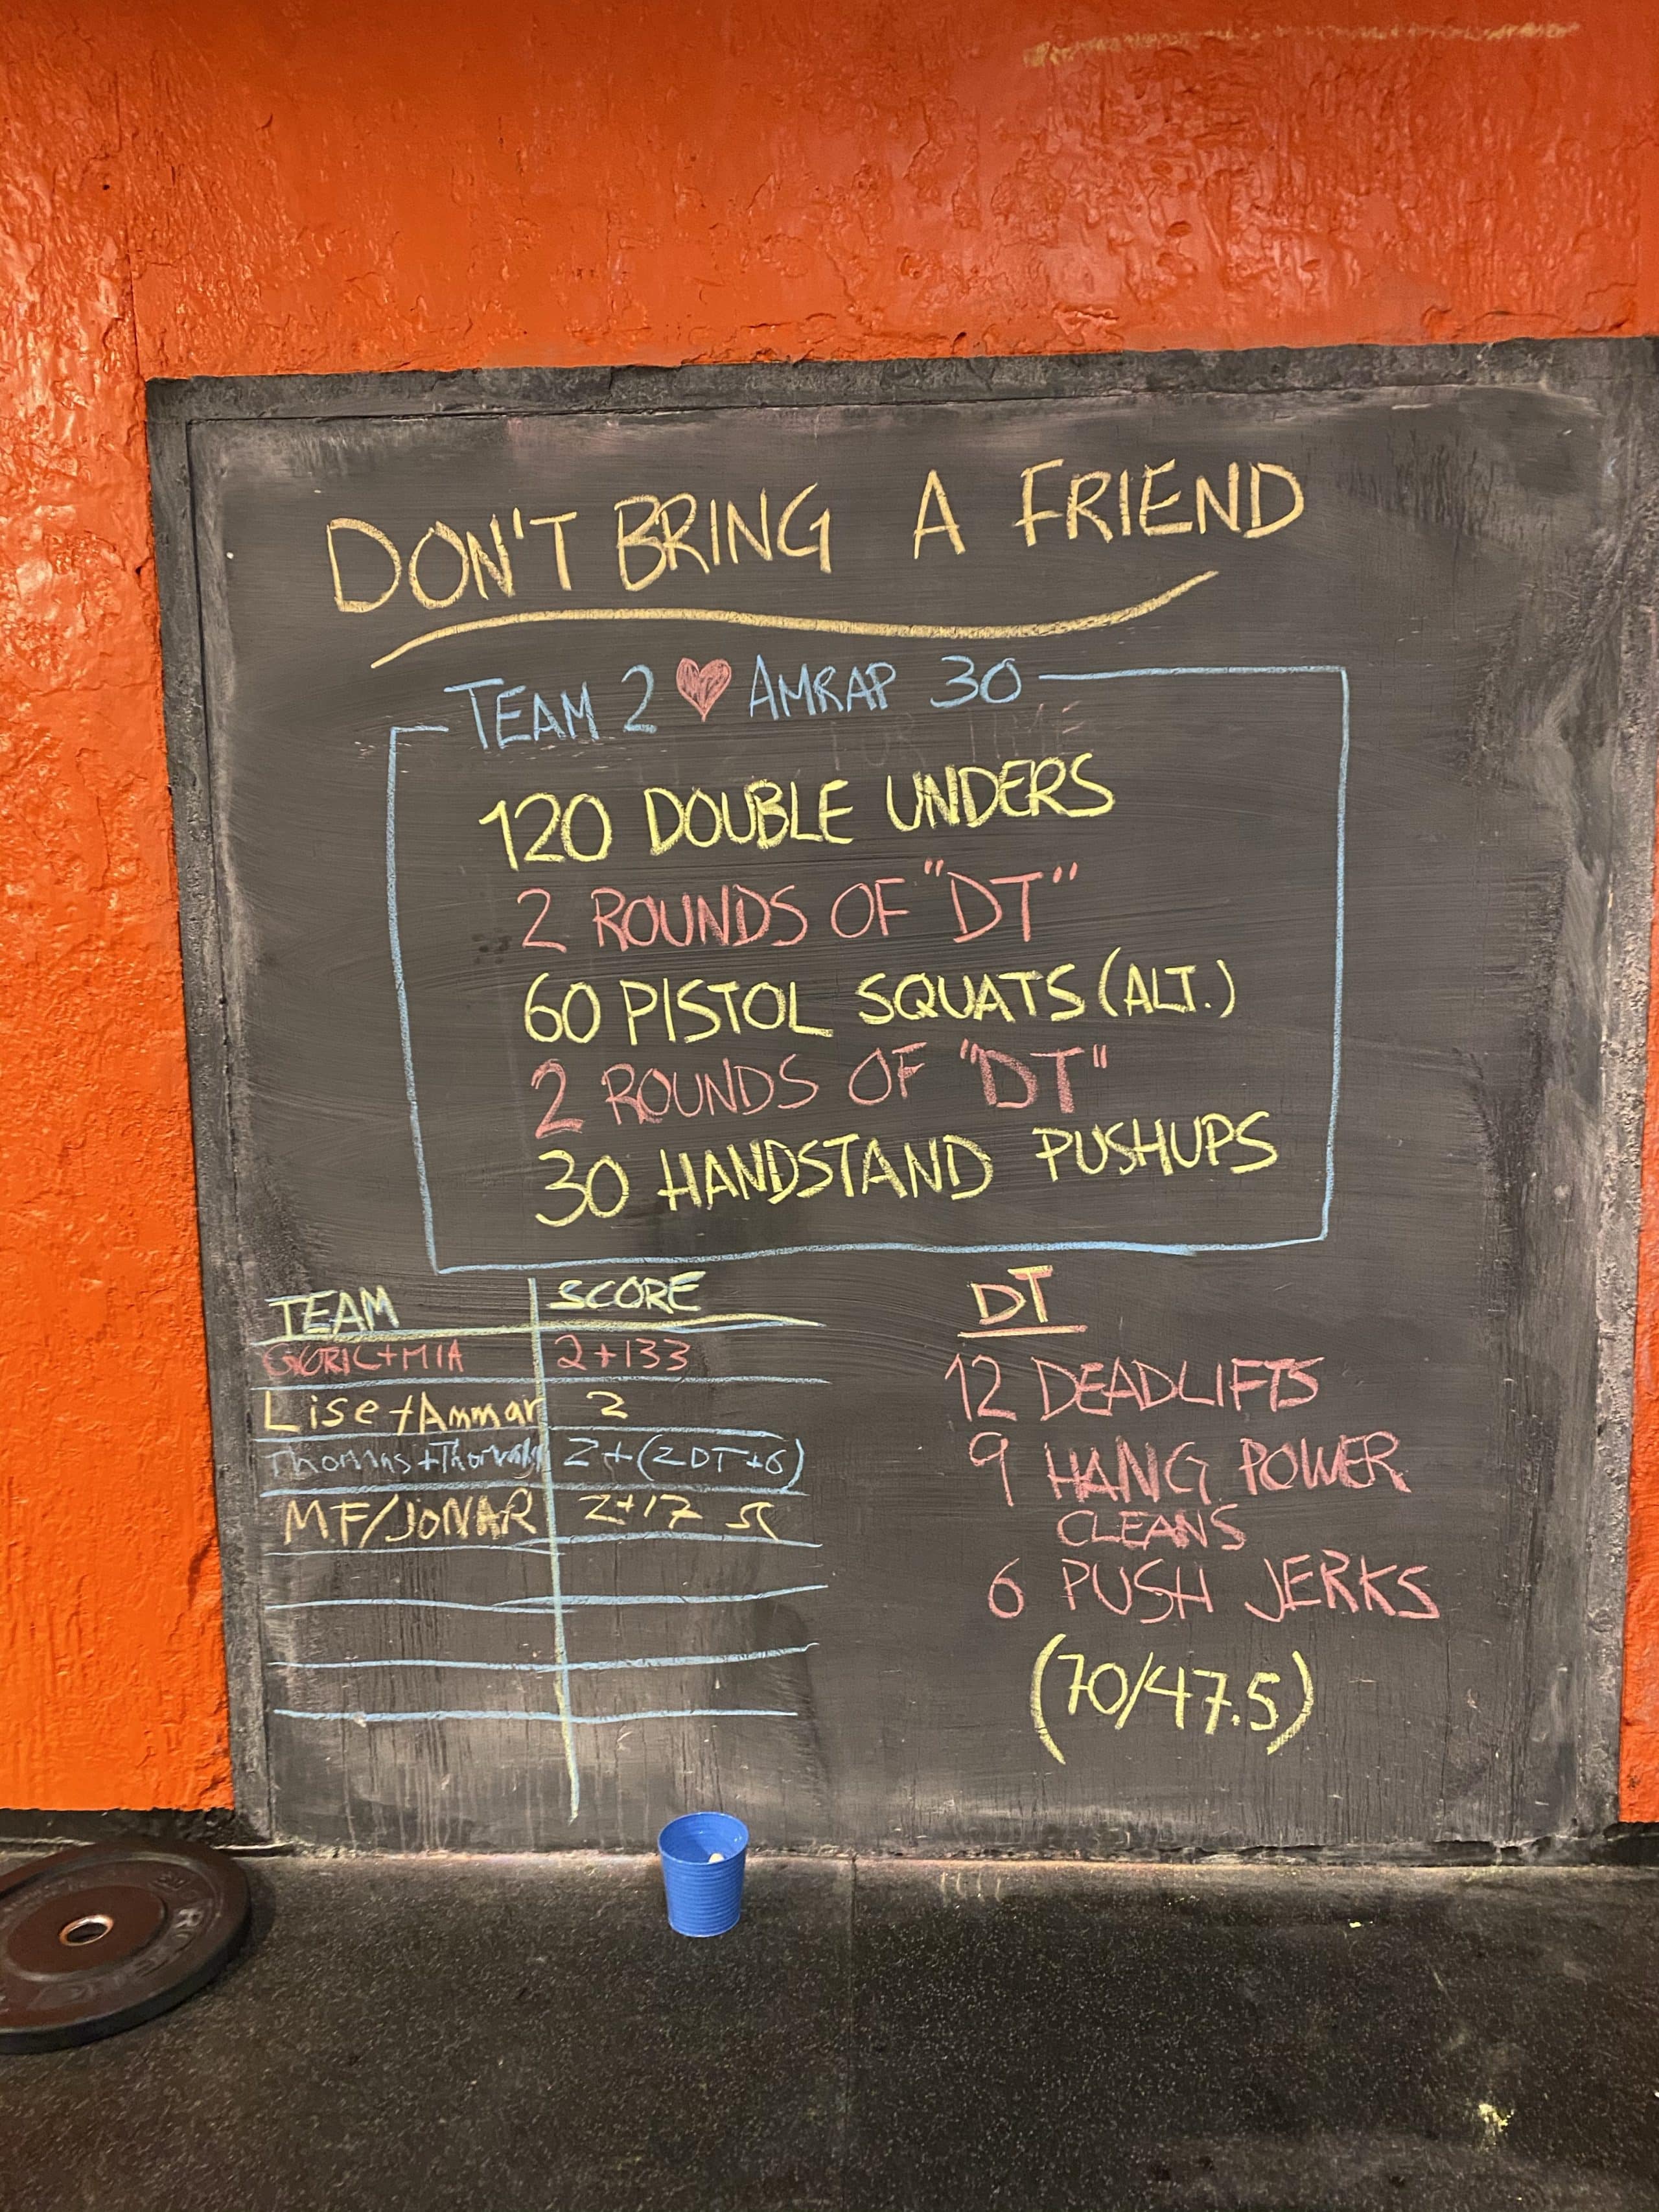 DON'T BRING A FRIEND
TEAM 2 ♥ AMRAP 30
120 DOUBLE UNDERS
2 ROUNDS OF "DT"
60 PISTOL SQUATS (ALT.)
2 ROUNDS OF "DT"
30 HANDSTAND PUSHUPS
TEAM SCORE
+MIA 2+133
Lise+Ammar 2
Thomas+ 2+(2DT+6)
MF/JONAR 2+17
DT
12 DEADLIFTS
9 HANG POWER
CLEANS
6 PUSH JERKS
(70/47.5)